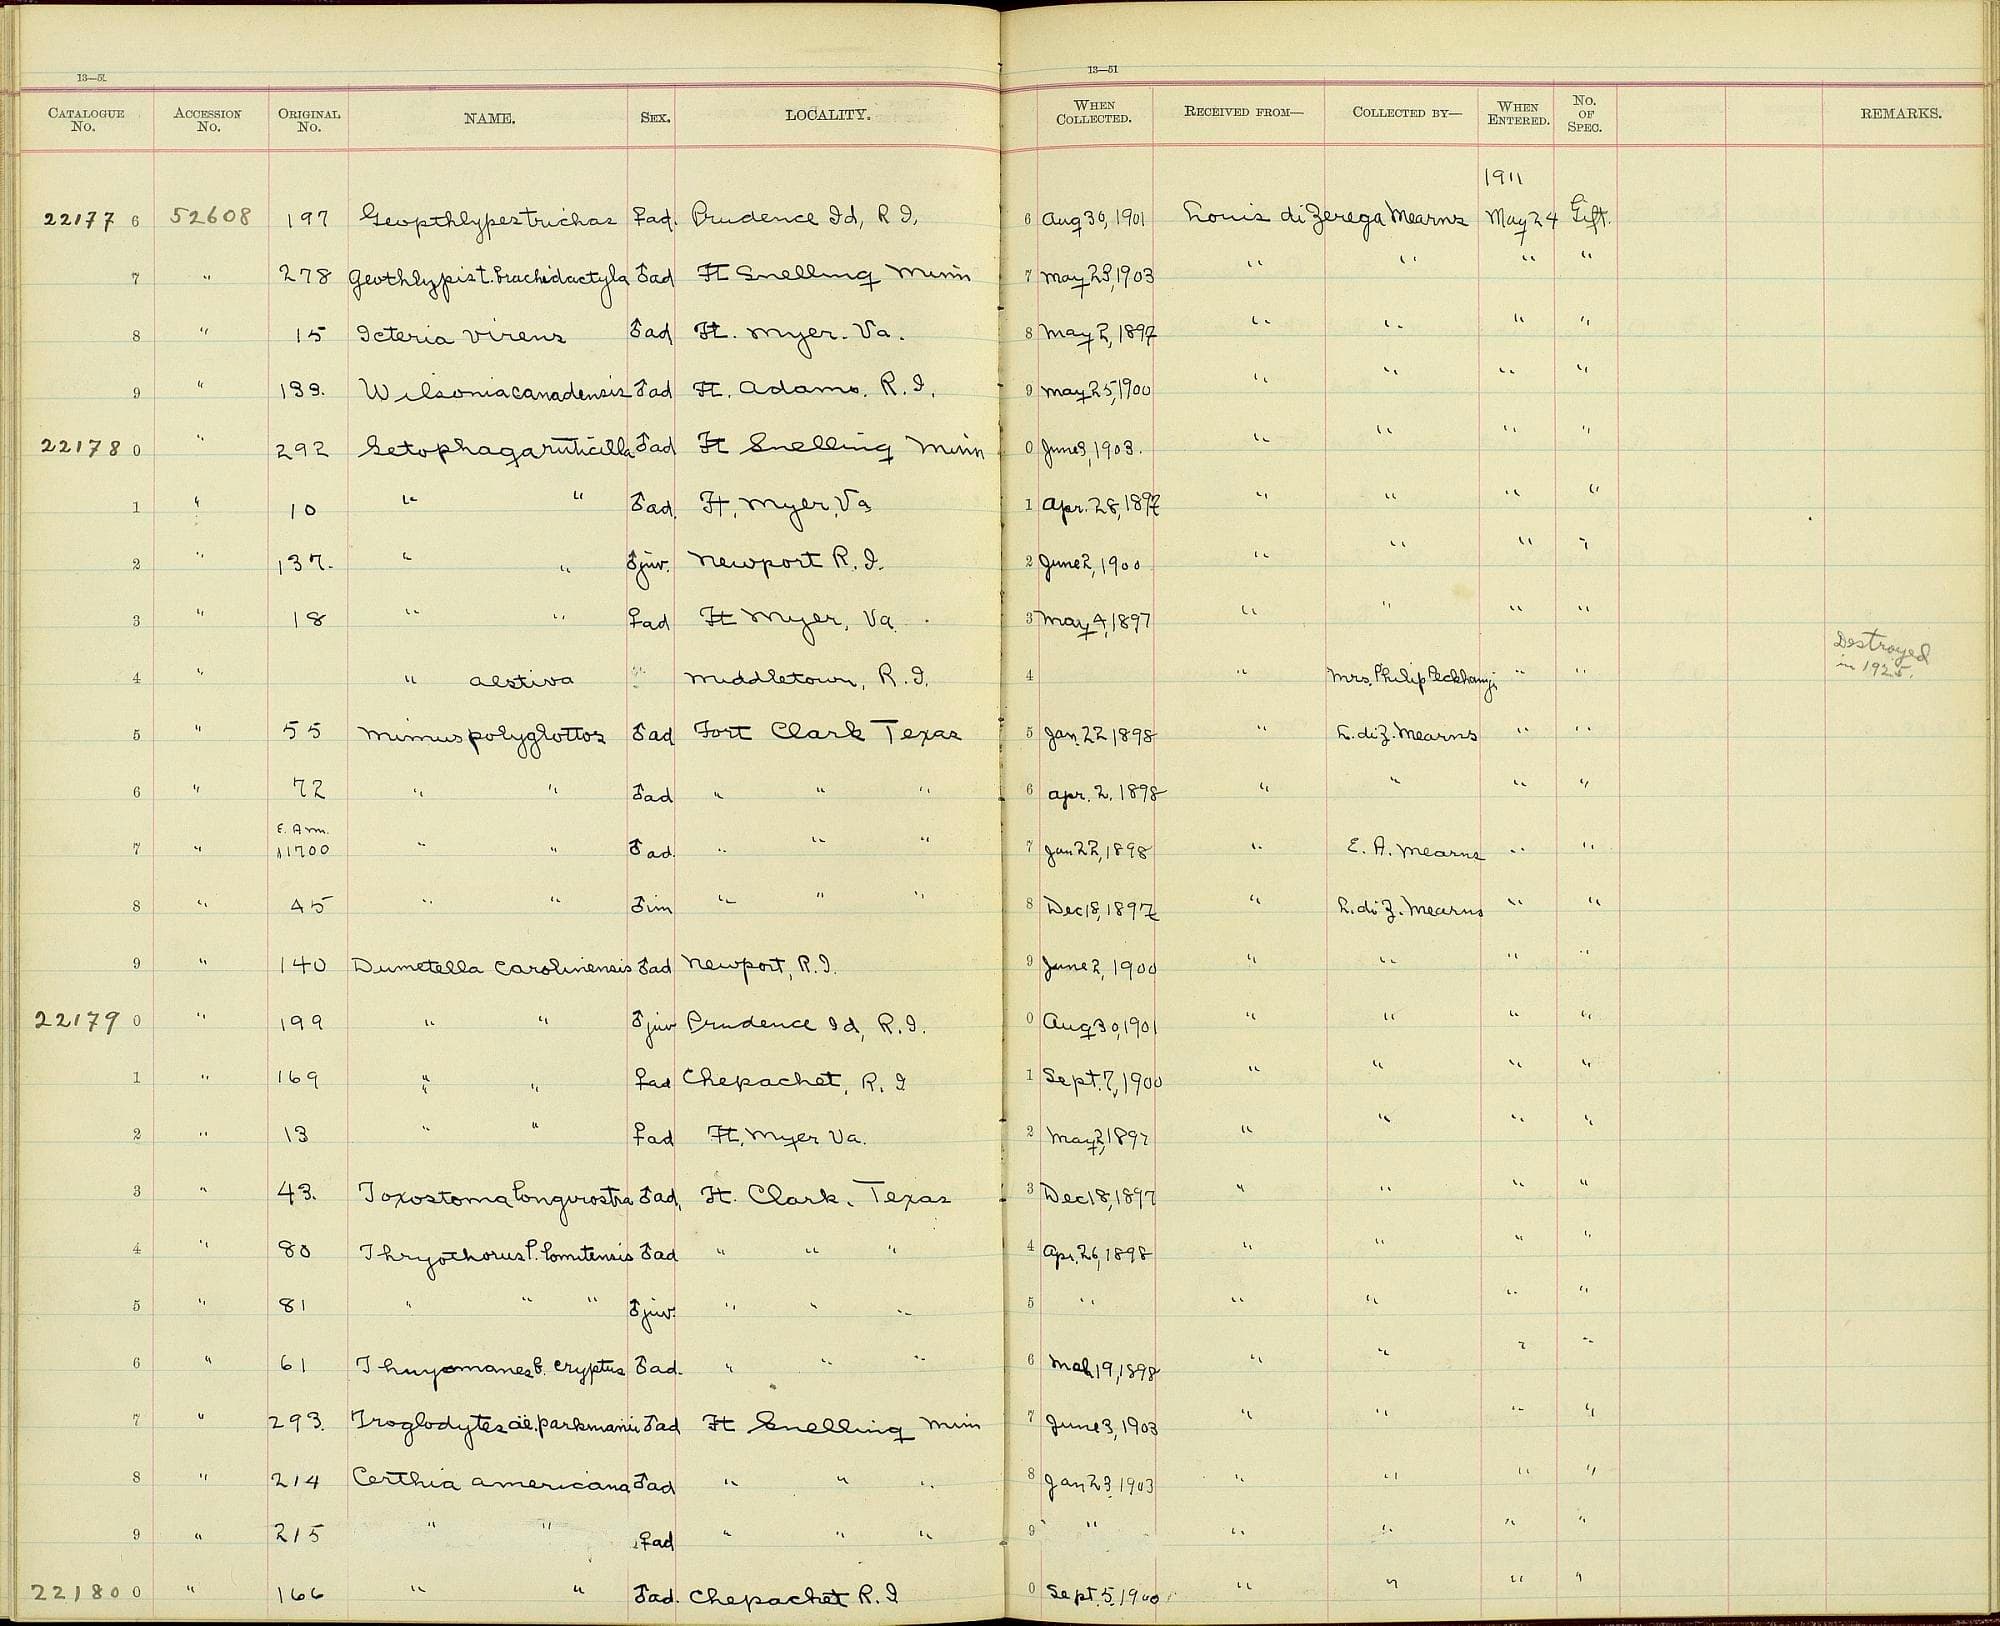 13—51
13—51
CATALOGUE No. ACCESSION No. ORIGINAL No. NAME. SEX. LOCALITY. WHEN COLLECTED. RECEIVED FROM— COLLECTED BY— WHEN ENTERED. No. OF SPEC. REMARKS.
1911
22177 6 52608 197 Geopthlypes trichas ♀ad. Prudence Id, R I, 6 Aug 30, 1901 Louis di Zerega Mearns May 24 Gift.
7 " 278 Geothlypis t. brachidactyla ♂ad Ft Snelling Minn 7 May 23, 1903 " " " "
8 " 15 Icteria virens ♂ad Ft. Myer. Va. 8 May 2, 1897 " " " "
9 " 133. Wilsonia canadensis ♂ad Ft. Adams. R. I. 9 May 25, 1900 " " " "
22178 0 " 292 Setophaga ruticilla ♂ad Ft Snelling Minn 0 June 3, 1903. " " " "
1 " 10 " " ♂ad. Ft. Myer, Va 1 Apr. 28, 1897 " " " "
2 " 137. " " ♂juv. Newport R. I. 2 June 2, 1900 " " " "
3 " 18 " " ♀ad Ft Myer, Va 3 May 4, 1897 " " " "
4 " " aestiva " Middletown, R. I. 4 " Mrs. Philip Peckham jr " " Destroyed in 1925.
5 " 55 Mimus polyglottos ♂ad Fort Clark Texas 5 Jan. 22 1898 " L. di Z. Mearns " "
6 " 72 " " ♂ad " " " 6 Apr. 2. 1898 " " " "
E. A. M.
7 " 11700 " " ♂ad. " " " 7 Jan 22, 1898 " E. A. Mearns " "
8 " 45 " " ♂im " " " 8 Dec 18, 1897 " L. di Z. Mearns " "
9 " 140 Dumetella carolinensis ♂ad Newport, R. I. 9 June 2, 1900 " " " "
22179 0 " 199 " " ♂juv Prudence Id, R. I. 0 Aug 30, 1901 " " " "
1 " 169 " " ♀ad Chepachet, R. I 1 Sept. 7, 1900 " " " "
2 " 13 " " ♀ad Ft, Myer Va. 2 May 2, 1897 " " " "
3 " 43. Toxostoma longirostra ♂ad, Ft. Clark. Texas 3 Dec 18, 1897 " " " "
4 " 80 Thryothorus l. lomitensis ♂ad " " " 4 Apr. 26, 1898 " " " "
5 " 81 " " " ♂juv. " " " 5 " " " " "
6 " 61 Thryomanes b. cryptus ♂ad. " " " 6 Mch 19, 1898 " " " "
7 " 293. Troglodytes ae. parkmanii ♂ad Ft Snelling Minn 7 June 3, 1903 " " " "
8 " 214 Certhia americana ♂ad " " " 8 Jan 23, 1903 " " " "
9 " 215 " " ♀ad " " " 9 " " " " "
22180 0 " 166 " " ♂ad. Chepachet R. I 0 Sept. 5. 1900 " " " "